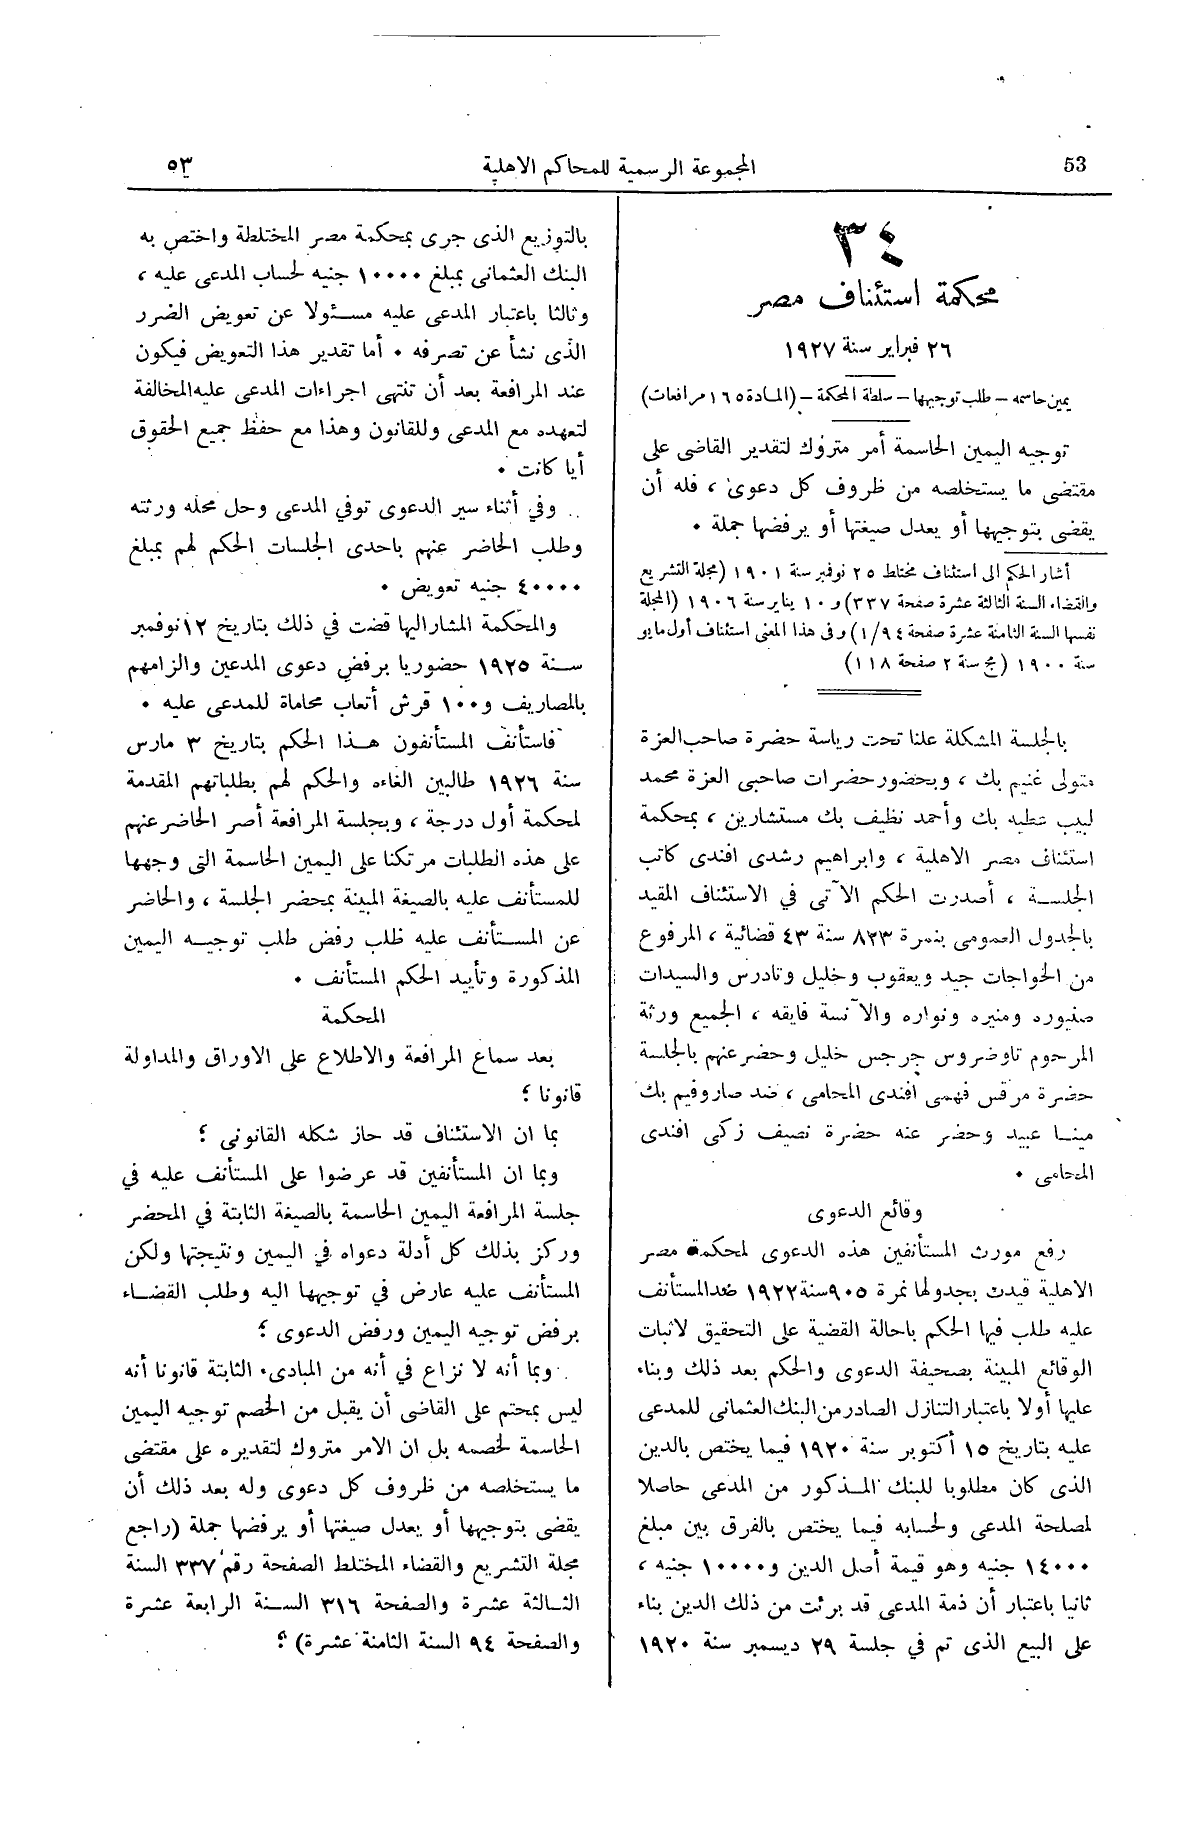 53
المجموعة الرسمية للمحاكم الاهلية
٥٣
٣٤
محكمة استئناف مصر
٢٦ فبراير سنة ١٩٢٧
يمين حاسمه – طلب توجيهها – سلطة المحكمة – (المادة ١٦٥ مرافعات)
توجيه اليمين الحاسمة أمر متروك لتقدير القاضى على
مقتضى ما يستخلصه من ظروف كل دعوى ، فله أن
يقضى بتوجيهها أو يعدل صيغتها أو يرفضها جملة .
أشار الحكم الى استئناف مختلط ٢٥ نوفمبر سنة ١٩٠١ (مجلة التشريع
والقضاء السنة الثالثة عشرة صفحة ٣٣٧) و ١٠ يناير سنة ١٩٠٦ (المجلة
نفسها السنة الثامنة عشرة صفحة ١/٩٤) وفى هذا المعنى استئناف أول مايو
سنة ١٩٠٠ (مج سنة ٢ صفحة ١١٨)
بالجلسة المشكلة علنا تحت رياسة حضرة صاحب العزة
متولى غنيم بك ، وبحضور حضرات صاحبى العزة محمد
لبيب عطيه بك وأحمد نظيف بك مستشارين ، بمحكمة
استئناف مصر الاهلية ، وابراهيم رشدى افندى كاتب
الجلسة ، أصدرت الحكم الآتى في الاستئناف المقيد
بالجدول العمومى بنمرة ٨٢٣ سنة ٤٣ قضائية ، المرفوع
من الخواجات جيد ويعقوب وخليل وتادرس والسيدات
صفيوره ومنيره ونواره والآنسة فايقه ، الجميع ورثة
المرحوم تاوضروس جرجس خليل وحضر عنهم بالجلسة
حضرة مرقس فهمى افندى المحامى ، ضد صاروفيم بك
مينا عبيد وحضر عنه حضرة نصيف زكى افندى
المحامى .
وقائع الدعوى
رفع مورث المستأنفين هذه الدعوى لمحكمة مصر
الاهلية قيدت بجدولها نمرة ٩٠٥ سنة ١٩٢٢ ضد المستأنف
عليه طلب فيها الحكم باحالة القضية على التحقيق لاثبات
الوقائع المبينة بصحيفة الدعوى والحكم بعد ذلك وبناء
عليها أولا باعتبار التنازل الصادر من البنك العثمانى للمدعى
عليه بتاريخ ١٥ أكتوبر سنة ١٩٢٠ فيما يختص بالدين
الذى كان مطلوبا للبنك المذكور من المدعى حاصلا
لمصلحة المدعى ولحسابه فيما يختص بالفرق بين مبلغ
١٤٠٠٠ جنيه وهو قيمة أصل الدين و ١٠٠٠٠ جنيه ،
ثانيا باعتبار أن ذمة المدعى قد برئت من ذلك الدين بناء
على البيع الذى تم في جلسة ٢٩ ديسمبر سنة ١٩٢٠
بالتوزيع الذى جرى بمحكمة مصر المختلطة واختص به
البنك العثمانى بمبلغ ١٠٠٠٠ جنيه لحساب المدعى عليه ،
وثالثا باعتبار المدعى عليه مسئولا عن تعويض الضرر
الذى نشأ عن تصرفه . أما تقدير هذا التعويض فيكون
عند المرافعة بعد أن تنتهى اجراءات المدعى عليه المخالفة
لتعهده مع المدعى وللقانون وهذا مع حفظ جميع الحقوق
أيا كانت .
وفي أثناء سير الدعوى توفي المدعى وحل محله ورثته
وطلب الحاضر عنهم باحدى الجلسات الحكم لهم بمبلغ
٤٠٠٠٠ جنيه تعويض .
والمحكمة المشار اليها قضت في ذلك بتاريخ ١٢ نوفمبر
سنة ١٩٢٥ حضوريا برفض دعوى المدعين والزامهم
بالمصاريف و ١٠٠ قرش أتعاب محاماة للمدعى عليه .
فاستأنف المستأنفون هذا الحكم بتاريخ ٣ مارس
سنة ١٩٢٦ طالبين الغاءه والحكم لهم بطلباتهم المقدمة
لمحكمة أول درجة ، وبجلسة المرافعة أصر الحاضر عنهم
على هذه الطلبات مرتكنا على اليمين الحاسمة التى وجهها
للمستأنف عليه بالصيغة المبينة بمحضر الجلسة ، والحاضر
عن المستأنف عليه طلب رفض طلب توجيه اليمين
المذكورة وتأييد الحكم المستأنف .
المحكمة
بعد سماع المرافعة والاطلاع على الاوراق والمداولة
قانونا ؛
بما ان الاستئناف قد حاز شكله القانونى ؛
وبما ان المستأنفين قد عرضوا على المستأنف عليه في
جلسة المرافعة اليمين الحاسمة بالصيغة الثابتة في المحضر
وركز بذلك كل أدلة دعواه في اليمين ونتيجتها ولكن
المستأنف عليه عارض في توجيهها اليه وطلب القضاء
برفض توجيه اليمين ورفض الدعوى ؛
وبما أنه لا نزاع في أنه من المبادىء الثابتة قانونا أنه
ليس بمحتم على القاضى أن يقبل من الخصم توجيه اليمين
الحاسمة لخصمه بل ان الامر متروك لتقديره على مقتضى
ما يستخلصه من ظروف كل دعوى وله بعد ذلك أن
يقضى بتوجيهها أو يعدل صيغتها أو يرفضها جملة (راجع
مجلة التشريع والقضاء المختلط الصفحة رقم ٣٣٧ السنة
الثالثة عشرة والصفحة ٣١٦ السنة الرابعة عشرة
والصفحة ٩٤ السنة الثامنة عشرة) ؛